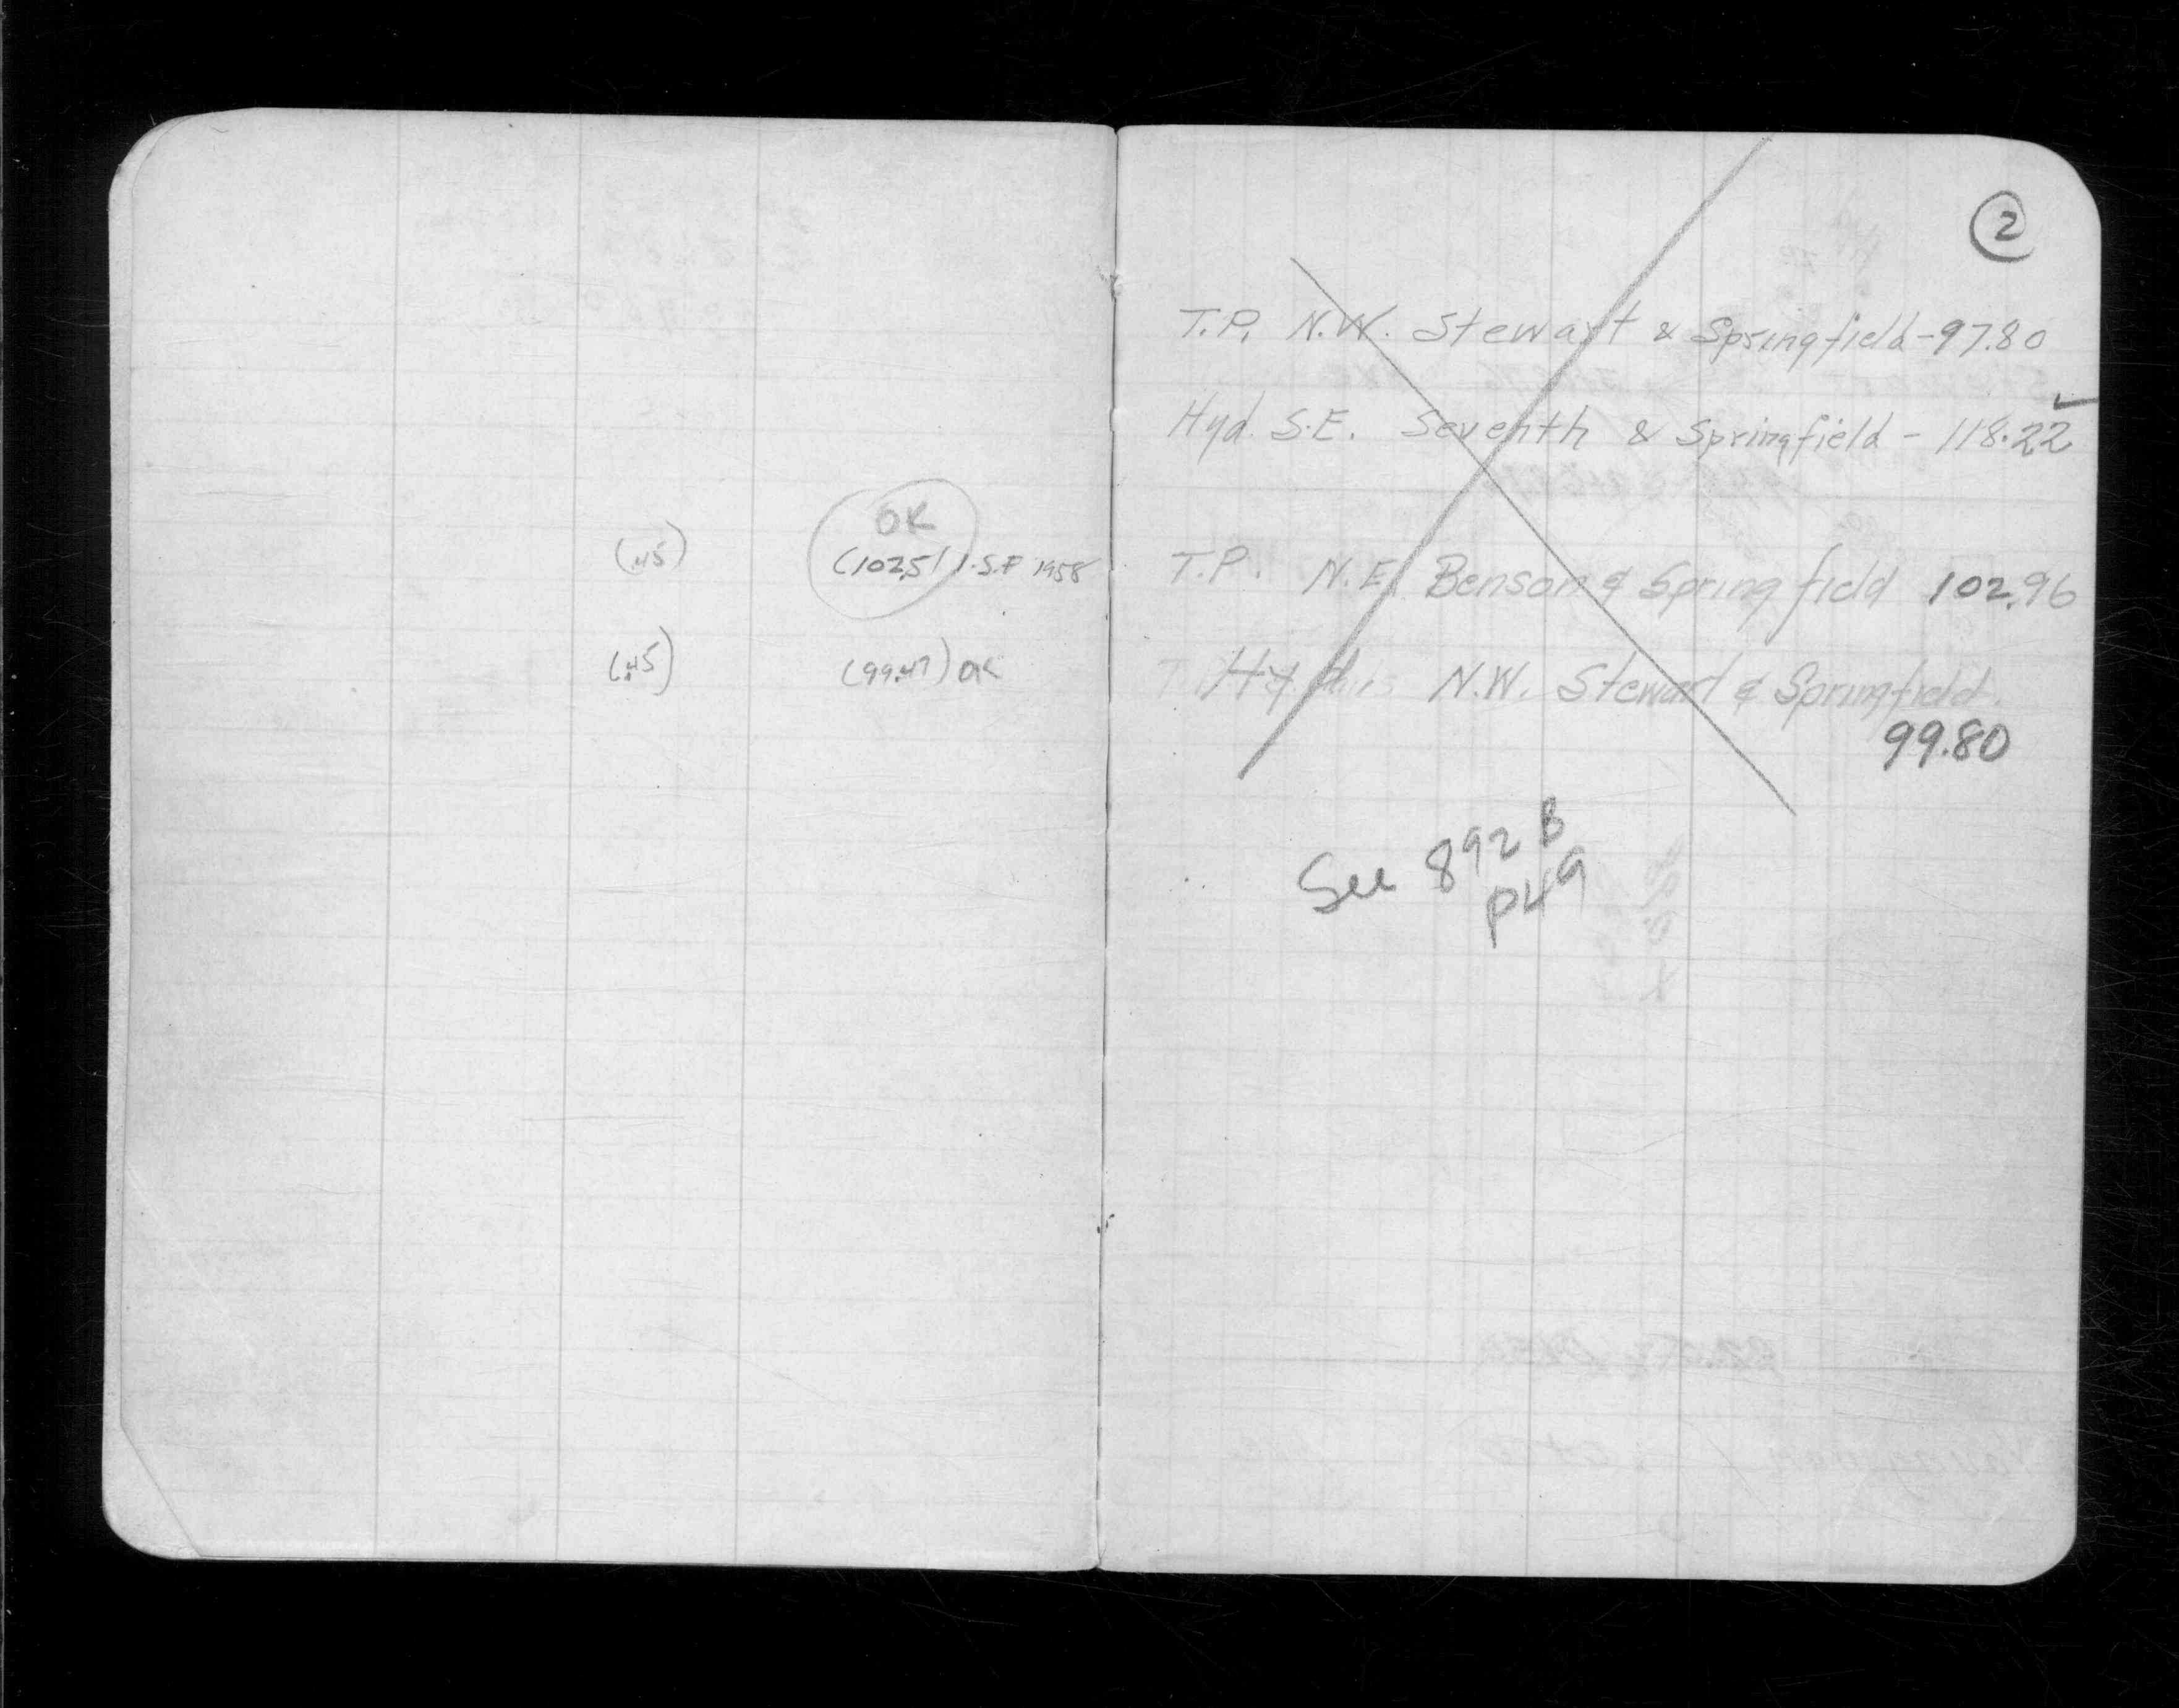 OK
(.45) (102.51) J.S.F 1958
(.45) (99.47) OK
2
T.P. N.W. Stewart & Springfield - 97.80
Hyd. S.E. Seventh & Springfield - 118.22
T.P. N.E. Benson & Springfield 102.96
Hyd. N.W. Stewart & Springfield.
99.80
See 892 B
P49